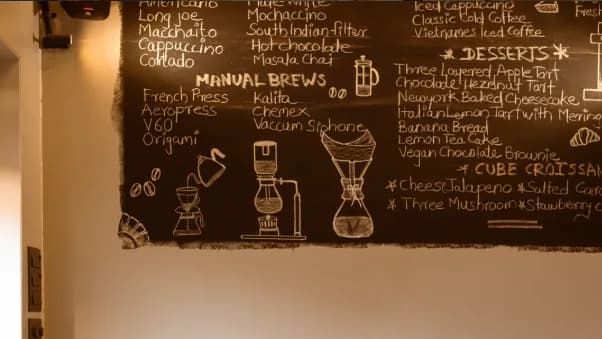 Americano
Long joe
Macchaito
Cappuccino
Cortado
Flate White
Mochaccino
South Indian filter
Hot chocolate
Masala Chai
MANUAL BREWS
French Press
Aeropress
V60
Origami
Kalita
Chemex
Vaccum Siphone
Iced Cappuccino
Classic Cold Coffee
Vietnames Iced Coffee
Fresh
* DESSERTS *
Three Layered Apple Tart
Chocolate Hezelnut Tart
Newyork Baked Cheesecake
Italian Lemon Tart with Mering
Banana Bread
Lemon Tea Cake
Vegan Chocolate Brownie
* CUBE CROISSAN
* Cheese Jalapeno * Salted Cara
* Three Mushroom * Strawberry c